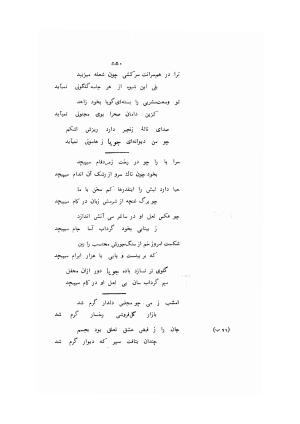 ۵۵۰
ترا در همسرانت سرکشی چون شعله میزیبد
بلی این شیوه از هر جامه گلگونی نمیآید
تو وسعت مشربی را بسته‌ای گویا بخود زاهد
کزین دامان صحرا بوی مجنونی نمیآید
صدای نالۀ زنجیر دارد ریزش اشکم
چو من دیوانه‌ای جویا ز هامونی نمیآید
سرا پا را چو در رخت
بخود چون تاک سرو از رشک آن اندام میپیچد
حیا دارد لبش را اینقدرها کم سخن با ما
چو برگ غنچه از شرمش زبان در کام میپیچد
چو عکس لعل او در ساغر می آتش اندازد
ز بیتابی بخود گرداب آسا جام میپیچد
شکست امروز خم از سنگ محتسب را بین
که بر بیدست و پایی با هزار ابرام میپیچد
گلوی تر نسازد باده جویا دور ازان محفل
سیر گرداب سان بی لعل او در کام میپیچد
امشب ز می چو مجلس دلدار گرم شد
بازار گلفروشی رخسار گرم شد
جان را ز فیض عشق تعلق بود بجسم
(۹۹ ب)
چندان بتافت که دیوار گرم شد